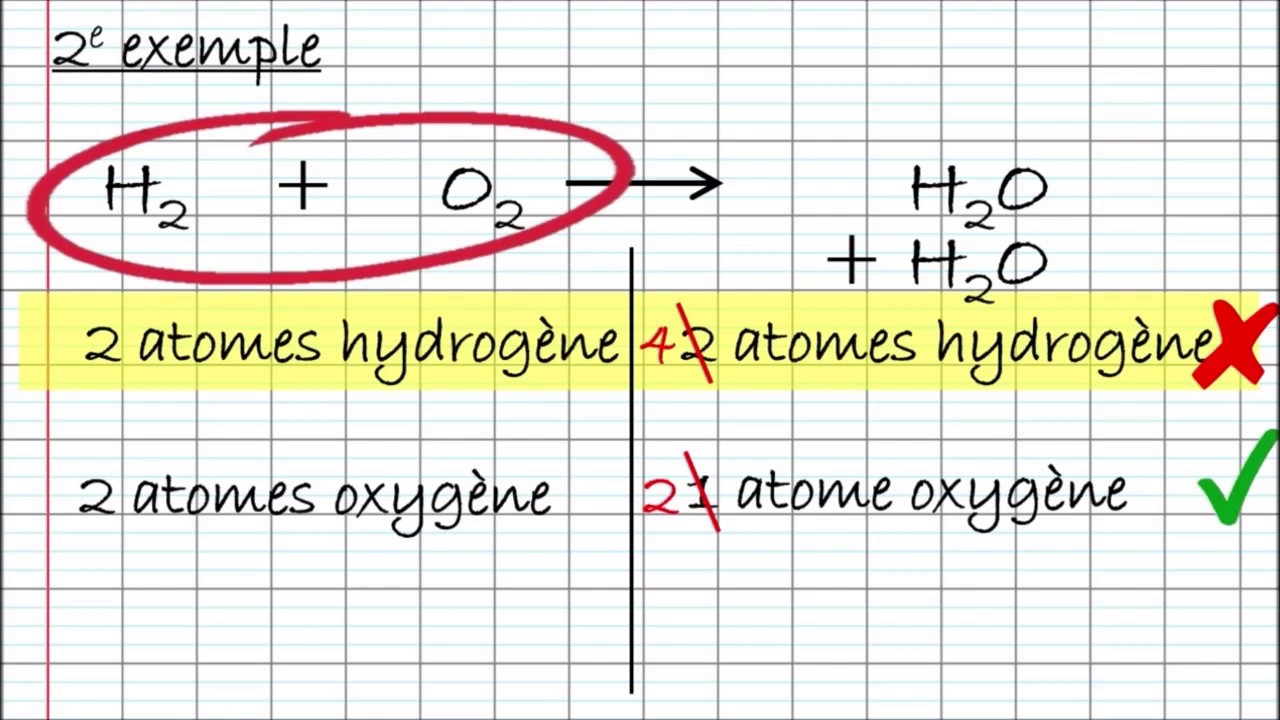 2e exemple
H2 + O2 → H2O
+ H2O
2 atomes hydrogène 4 2 atomes hydrogène
2 atomes oxygène 2 1 atome oxygène